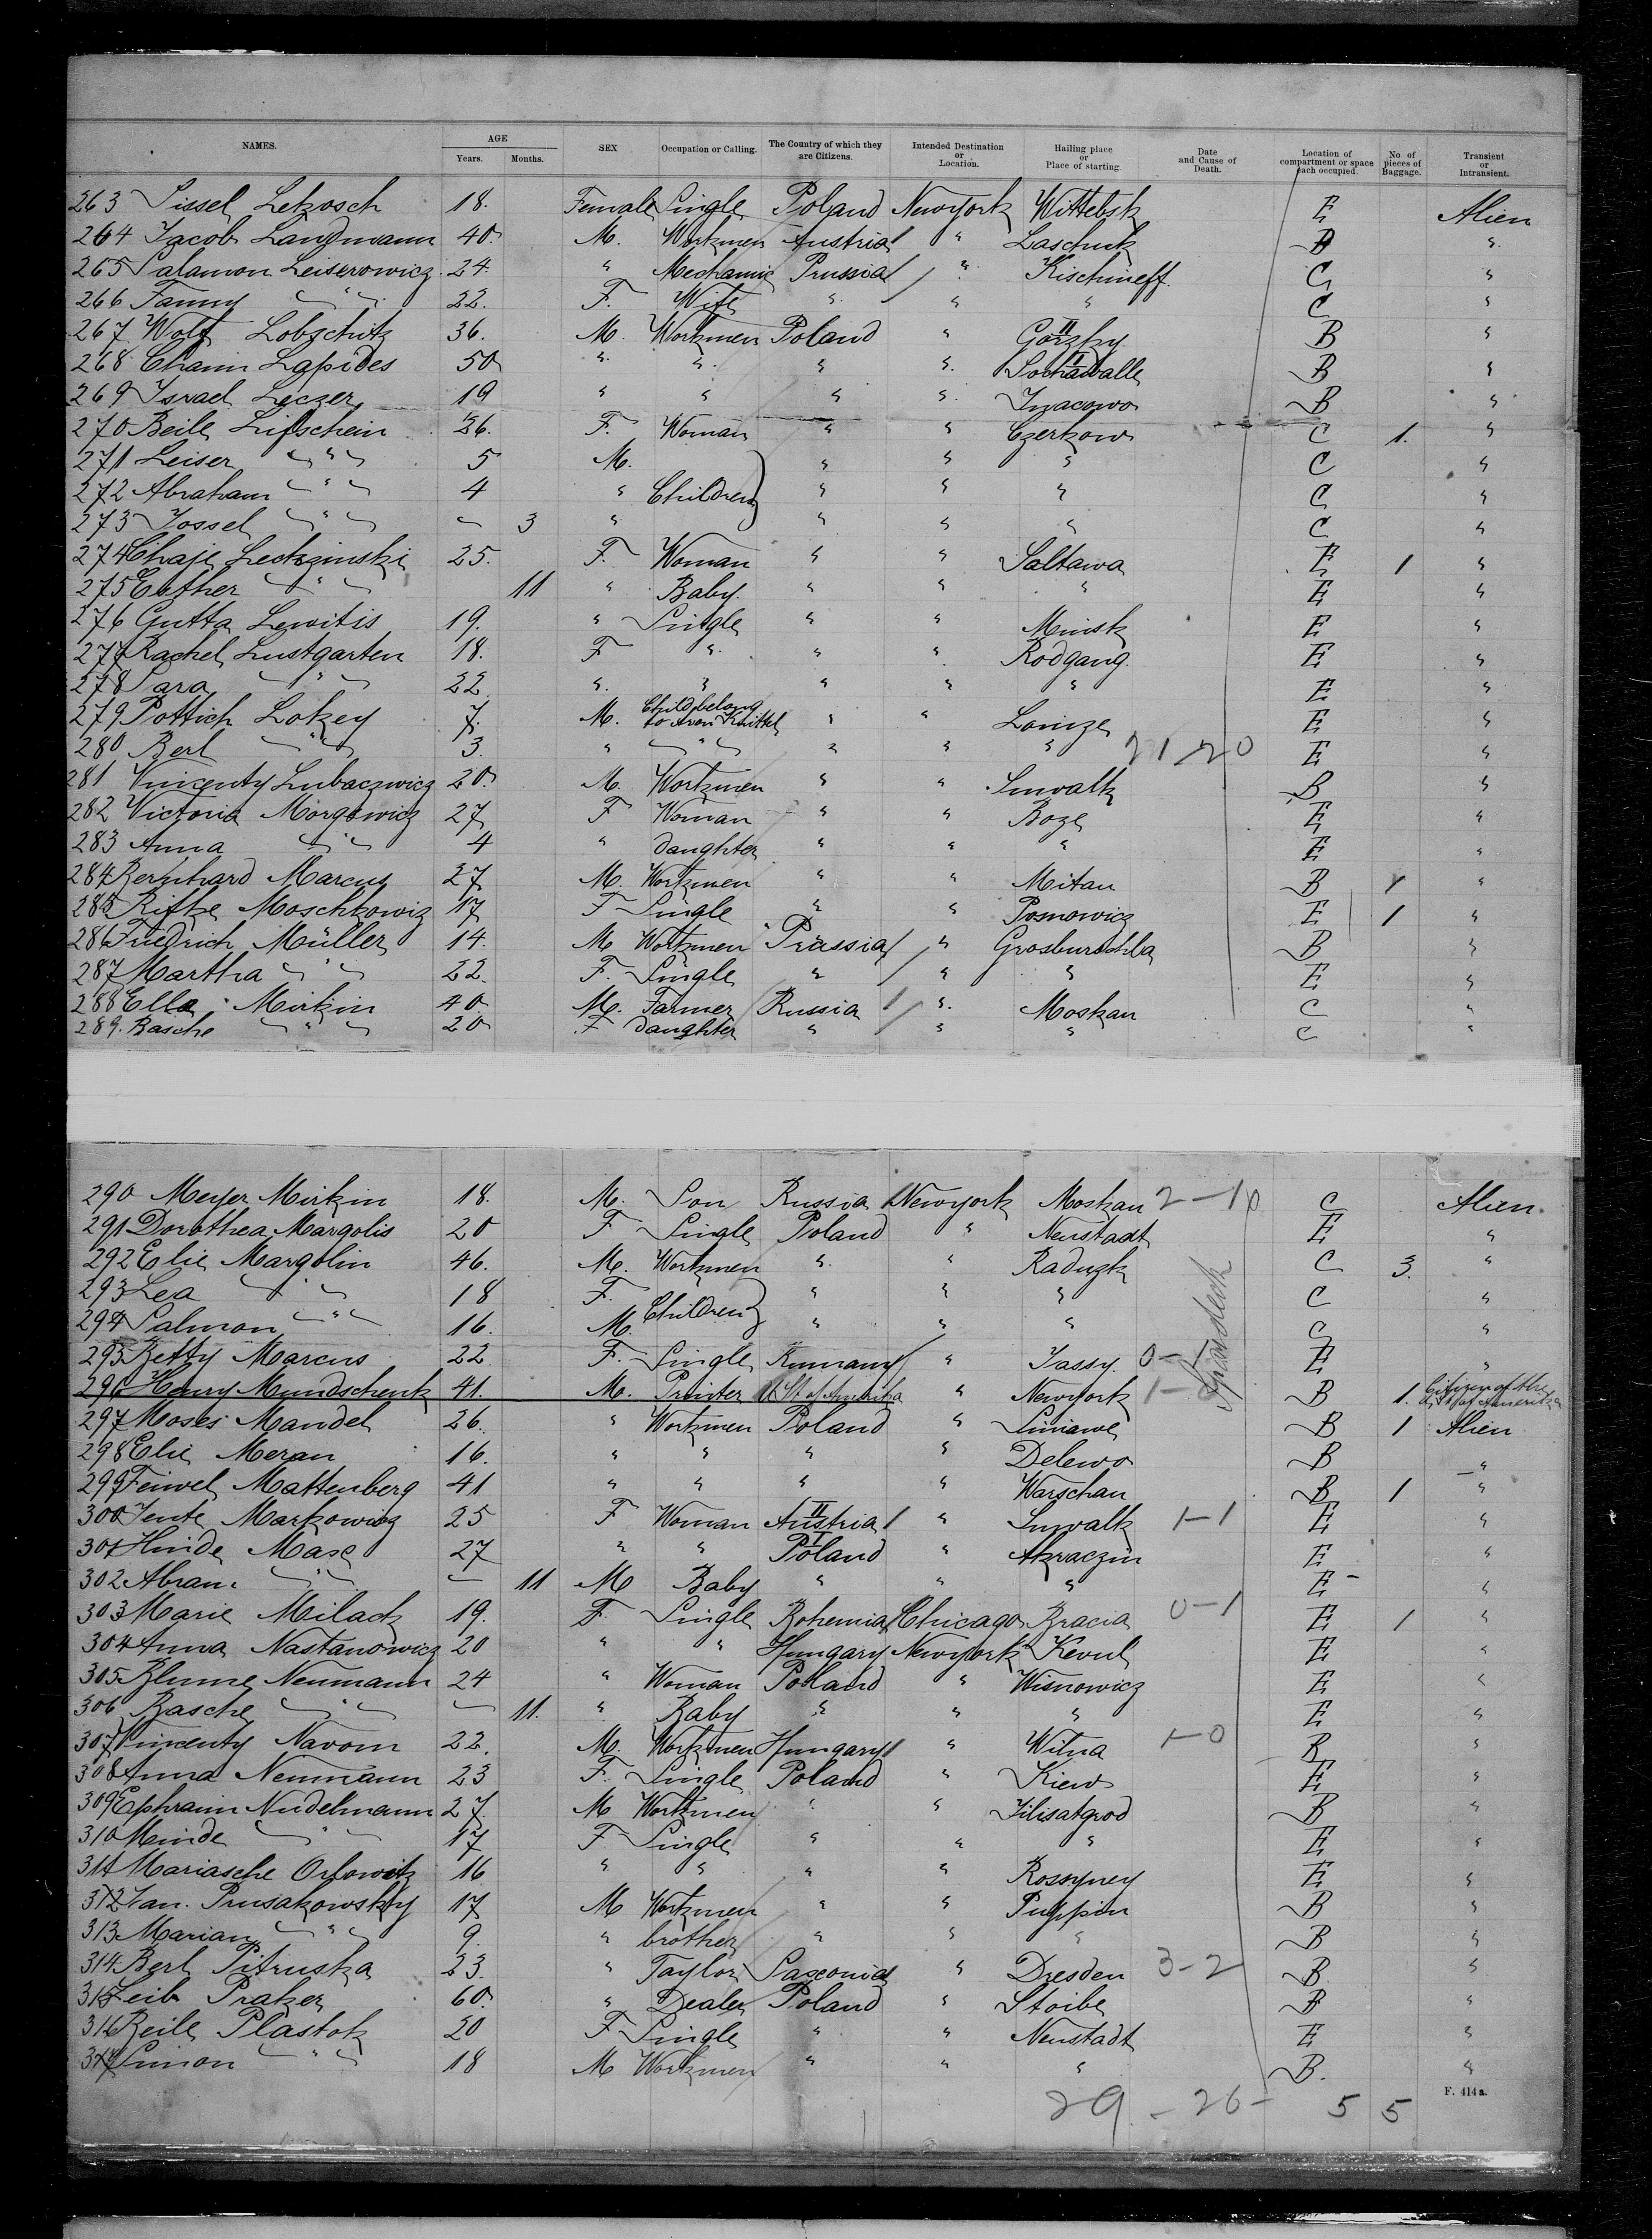 NAMES. AGE Years. Months. SEX Occupation or Calling. The Country of which they are Citizens. Intended Destination or Location. Hailing place or Place of starting. Date and Cause of Death. Location of compartment or space each occupied. No. of pieces of Baggage. Transient or Intransient.
263 Sissel Letzosch 18. Female Single Poland Newyork Wittebsk E Alien
264 Jacob Landmann 40. M. Workmen Austria " Laschuk B "
265 Salamon Leiserowicz 24. " Mechanic Prussia " Kischineff. C "
266 Fanny " 22. F. Wife " " " C "
267 Wolf Lobschitz 36. M. Workmen Poland " Gorzky B "
268 Chaim Lapides 50 " " " " B "
269 Israel Leczer 19 " " " " Inacowo B "
270 Beile Lifschein 26. F. Woman " " Czerkow C 1. "
271 Leiser " 5 M. " " " C "
272 Abraham " 4 " Children " " " C "
273 Jossel " 3 " " " " C "
274 Chaje Leckzinski 25. F. Woman " " Saltawa E 1 "
275 Esther " 11 " Baby. " " " E "
276 Gutta Lewitis 19. " Single " " Minsk E "
277 Rachel Lustgarten 18. F " " " Rodgang. E "
278 Sara " 22 " " " " " E "
279 Pottich Lotzey 7. M. Child belong to Aron Knittel " " Lomze E "
280 Berl " 3. " " " " " 21-20 E "
281 Vincenty Lubaczwicz 20. M. Workmen " " Suwalk B "
282 Victoria Morgowicz 27 F Woman " " Boze E "
283 Anna " 4 " daughter " " " E "
284 Bernhard Marcus 27 M. Workmen " " Mitau B 1 "
285 Rifke Moschkowiz 17 F Single " " Posnowicz E 1 "
286 Friedrich Müller 14. M Workmen Prussia " Grosburschla B "
287 Martha " 22. F. Single " " " E "
288 Ella Mirkin 40. M. Farmer Russia " Moskau C "
289. Basche " 20 F daughter " " " C "
290 Meyer Mirkin 18. M. Son Russia Newyork Moskau 2-10 C Alien.
291 Dorothea Margolis 20 F Single Poland " Neustadt E "
292 Elie Margolin 46. M. Workmen " " Raduzk C 3. "
293 Lea " 18 F. Children " " " C "
294 Salmon " 16. M. " " " C "
295 Betty Marcus 22 F. Single Rumany " Jassy. 0-1 E "
296 Henry Mundschenk 41. M. Printer U. St. of Amerika " Newyork 1- B 1. Citizen of the U. St. of Amerika
297 Moses Mandel 26. " Workmen Poland " Siniawe B 1 Alien
298 Elie Meran 16. " " " " Delewo B "
299 Feiwel Mattenberg 41 " " " " Warschau B 1 "
300 Jente Markowicz 25 F Woman Austria " Suwalk 1-1 E "
301 Hinde Mase 27 " " Poland " Akraczin E "
302 Abram " 11 M Baby " " " E "
303 Marie Milack 19. F. Single Bohemia Chicago Bracia 0-1 E 1 "
304 Anna Nastanowicz 20 " " Hungary Newyork Kevul E "
305 Blume Neumann 24 " Woman Poland " Wisnowicz E "
306 Basche " 11. " Baby " " " E "
307 Vincenty Navom 22. M. Workmen Hungary " Wilna 1-0 B "
308 Anna Neumann 23 F. Single Poland " Kiew E "
309 Ephraim Nudelmann 27. M Workmen " " Jilisatgrod B "
310 Minde " 17 F Single " " " E "
311 Mariasche Orlowitz 16 " " " " Rossyney E "
312 Ivan. Prusakowsky 17 M Workmen " " Puppin B "
313 Marian " 9. " brother " " " B "
314 Berl Pitruska 23. " Taylor Saxonia " Dresden 3-2 B "
315 Leib Praker 60. " Dealer Poland " Stoibe B "
316 Beile Plastok 20 F Single " " Neustadt E "
317 Simon " 18 M Workmen " " " B. "
F. 414a.
29 - 26 - 5 5